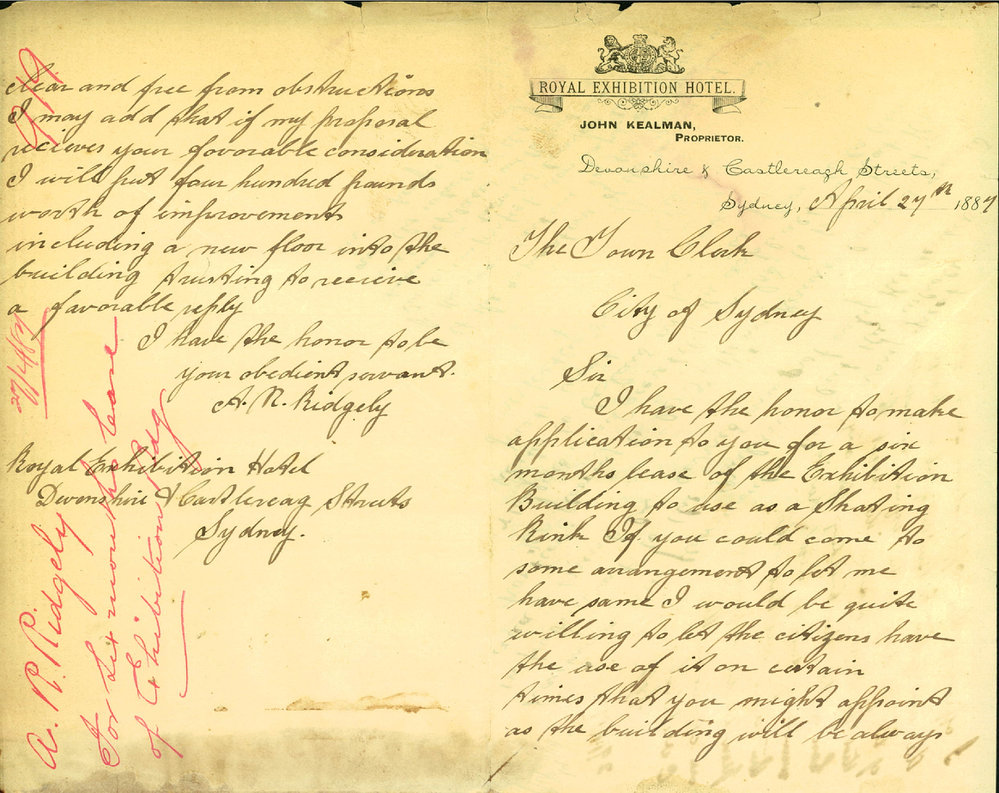 ROYAL EXHIBITION HOTEL.
JOHN KEALMAN,
PROPRIETOR.
Devonshire & Castlereagh Streets,
Sydney, April 27th 1887
The Town Clerk
City of Sydney
Sir
I have the honor to make
application to you for a six
months lease of the Exhibition
Building to use as a Skating
Rink If you could come to
some arrangement to let me
have same I would be quite
willing to let the citizens have
the use of it on certain
times that you might appoint
as the building will be always
clear and free from obstructions
I may add that if my proposal
recieves your favorable consideration
I will put four hundred pounds
worth of improvements
including a new floor into the
building trusting to recieve
a favorable reply
I have the honor to be
your obedient servant.
A. R. Ridgely
Royal Exhibition Hotel
Devonshire & Castlereag Streets
Sydney.
27/4/87
A. R. Ridgely
For six months lease
of Exhibition Bdg